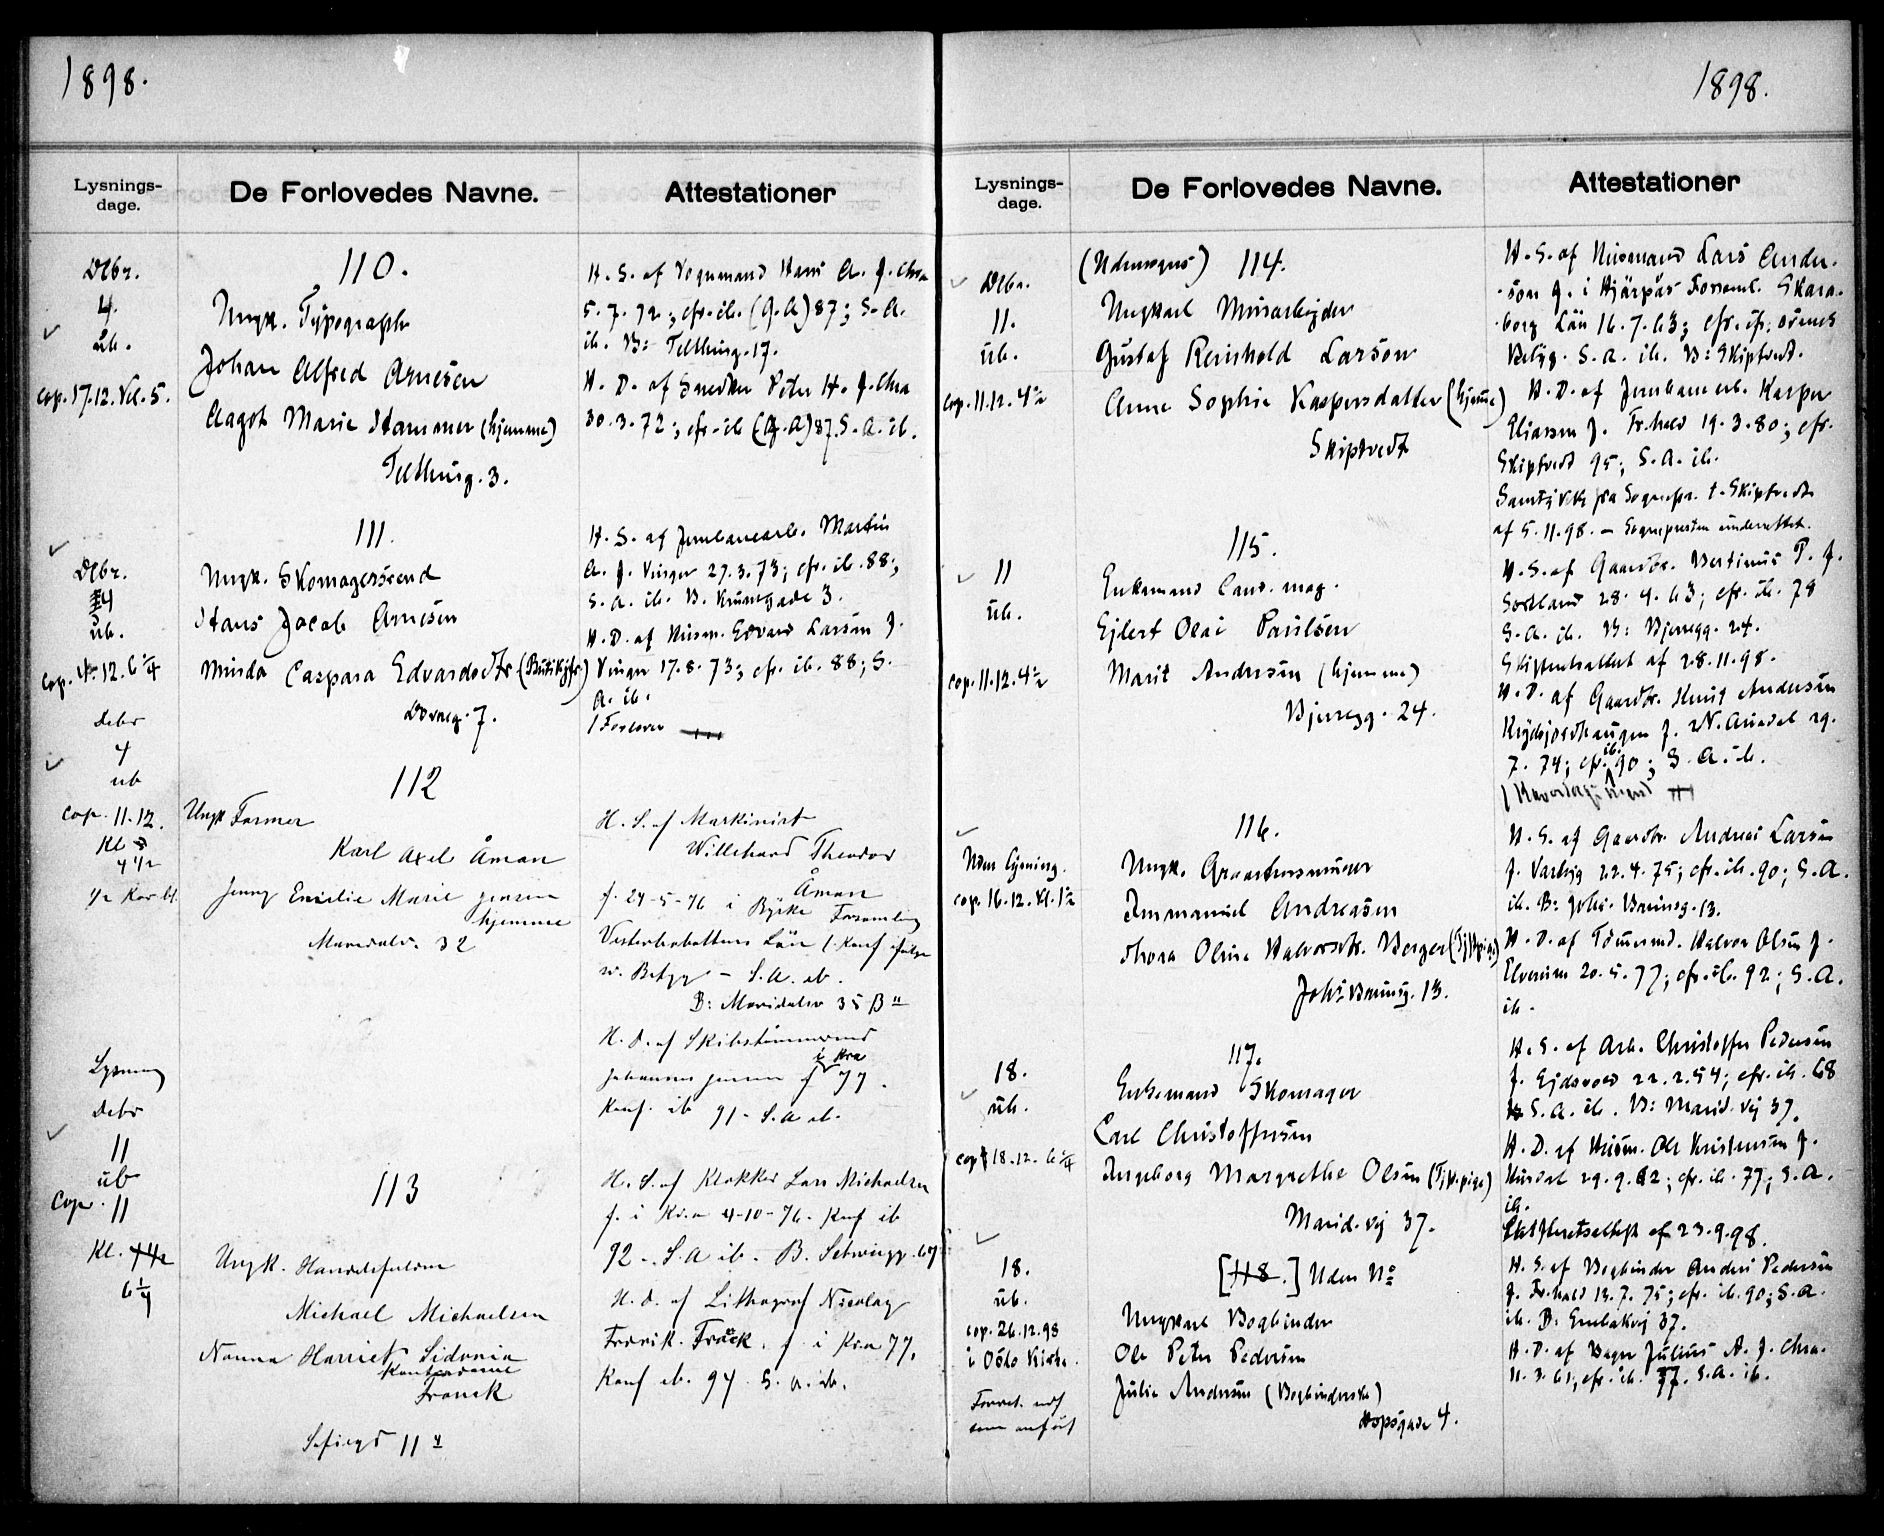 1898.
Lysnings-
dage.
De Forlovedes Navne.
Attestationer
Dcbr.
4.
üb.
cop. 17.12. Kl. 5.
110.
Ungk. Typograph
Johan Alfred Arnesen
Aagot Marie Hammer (hjemme)
Telthusg. 3.
H. S. af Vognmand Hans A. f. Chra
5.7.72; cfr. ib. (G.A) 87; S. A.
ib. B: Telthusg. 17.
H. D. af Snedker Peter H. f. Chra
30.3.72; cfr. ib (G.A) 87. S. A. ib.
Dcbr.
4
üb.
cop. 4.12. 6 1/4
111.
Ungk. Skomagersvend
Hans Jacob Arnesen
Minda Caspara Edvardsdtr (Butikjfr)
Dovreg. 7.
H. S. af Jernbanearb. Martin
A. f. Vinger 27.3.73; cfr. ib. 88;
S. A. ib. B. Krumgade 3.
H. D. af Husm. Edvard Larsen f.
Vinger 17.8.73; cfr. ib. 88; S.
A. ib.
1 Forlover
Debr
4
ub
Cop. 11.12.
Kl
4 1/2
112
Ungk Farmer
Karl Axel Åman
Jenny Emilie Marie Jensen
hjemme
Maridalsv. 32
H. S. af Maskinist
Willehard Theodor
Åman
f. 24-5-76 i Byske Forsamling
Vesterbottens Län
Betyg - S. A. ib.
B: Maridalsv 35 B
H. D. af Skibstømmermand
i Kra
Johannes Jensen f 77.
Konf. ib 91 - S. A ib.
Lysning
Debr
11
üb
Cop. 11
Kl.
6 1/4
113
Ungk. Handelsfuldm
Michael Michaelsen
Nanna Harriet Sidonia
Kontordame
Franck
Sofiegd 11
H. S. af Klokker Lars Michaelsen
f. i Kra 4-10-76. Knf ib
92 -. S. A ib. B. Schweigg. 67
H. D. af Lithograf Nicolay
Fredrik Franck. f. i Kra 77,
Konf ib. 94. S. a. ib.
1898.
Lysnings-
dage.
De Forlovedes Navne.
Attestationer
Dcbr.
11.
üb.
cop. 11.12. 4 1/2
(Udensogns) 114.
Ungkarl Minearbejder
Gustaf Reinhold Larson
Anne Sophie Kaspersdatter (hjemme)
Skiptvedt
H. S. af Husmand Lars Ander-
son f. i Hjärpås Forsaml. Skara-
borg Län 16.7.63; cfr. if. svensk
Betyg. S. A. ib. B: Skiptvedt.
H. D. af Jernbanearb. Kasper
Eliassen f. Fr.hald 19.3.80; cfr.
Skiptvedt 95; S. A. ib.
Samtykke fra Sognepr. t. Skiptvedt
af 5.11.98. - Sognepresten underrettet.
11
üb.
cop. 11.12. 4 1/2
115.
Enkemand Cand. mag.
Ejlert Olai Paulsen
Marit Andersen (hjemme)
Bjerregg. 24.
H. S. af Gaardbr. Bertinus P. f.
Sortland 28.4.63; cfr. ib. 78
S. A. ib. B: Bjerregg. 24.
Skifteattest af 28.11.98.
H. D. af Gaardbr. Knut Andersen
f. N. Aurdal 29.
7.74; cfr. ib. 90; S. A. ib.
Uden lysning.
cop. 16.12. Kl. 1 1/2
116.
Ungk. Graastensminer
Immanuel Andreasen
Thora Oline Halvorsdtr. Berger (Tjpige)
Johs Bruunsg. 13.
H. S. af Gaardbr. Andreas Larsen
f. Varteig 22.4.75; cfr. ib. 90; S. A.
ib. B: Johs. Bruunsg. 13.
H. D. af Tømmermd. Halvor Olsen f.
Elverum 20.5.77; cfr. ib. 92; S. A.
ib.
18.
üb.
cop 18.12. 6 1/4
117.
Enkemand Skomager
Carl Christoffersen
Ingeborg Margrethe Olsen (Tj.pige)
Marid.vej 37.
H. S. af Arb. Christoffer Pedersen
f. Ejdsvold 22.2.54; cfr. ib. 68
S. A. ib. B: Marid.vej 37.
H. D. af Husm. Ole Kristensen f.
Hurdal 29.9.62; cfr. ib. 77; S. A.
ib.
Skifteretsattest af 23.9.98.
18.
üb.
cop. 26.12.98
i Oslo Kirke.
[118.] Uden No
Ungkarl Bogbinder
Ole Peter Pedersen
Julie Andersen (Bogbinderske)
Hopsgade 4.
H. S. af Bogbinder Anders Pedersen
f. Fr.hald 13.7.75; cfr. ib. 90; S. A.
ib. B: Enebakvej 37.
H. D. af Bager Julius A. f. Chra.
11.3.61; cfr. ib. 77. S. A. ib.